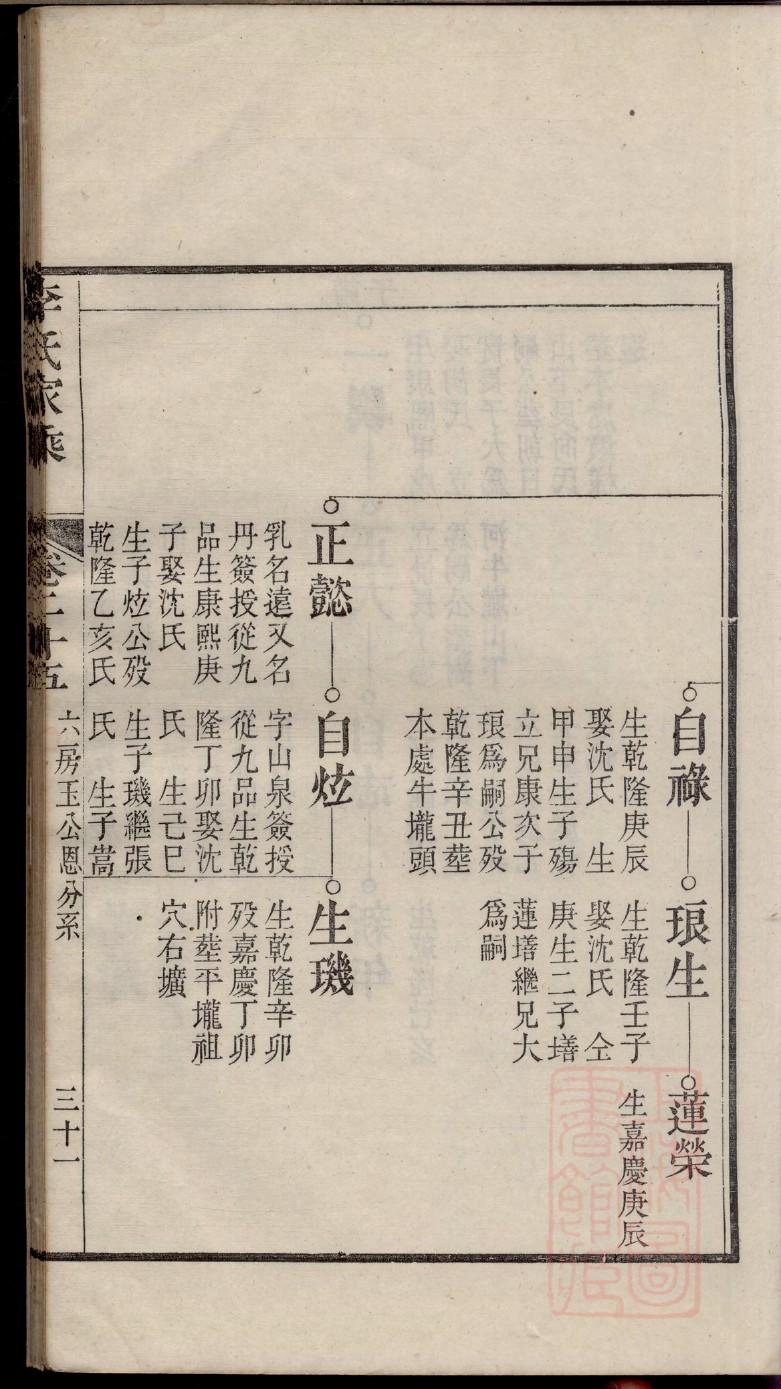 自祿
生乾隆庚辰
娶沈氏 生
甲申生子殤
立兄康次子
琅爲嗣公歿
乾隆辛丑塟
本處牛壠頭
琅生
生乾隆壬子
娶沈氏 仝
庚生二子墡
蓮墡繼兄大
爲嗣
蓮榮
生嘉慶庚辰
正懿
乳名遠又名
丹簽授從九
品生康熙庚
子娶沈氏
生子炫公歿
乾隆乙亥氏
自炫
字山泉簽授
從九品生乾
隆丁卯娶沈
氏 生己巳
生子璣繼張
氏 生子嵩
生璣
生乾隆辛卯
歿嘉慶丁卯
附塟平壠祖
穴右壙
李氏家乘
卷二十五
六房玉公恩分系
三十一